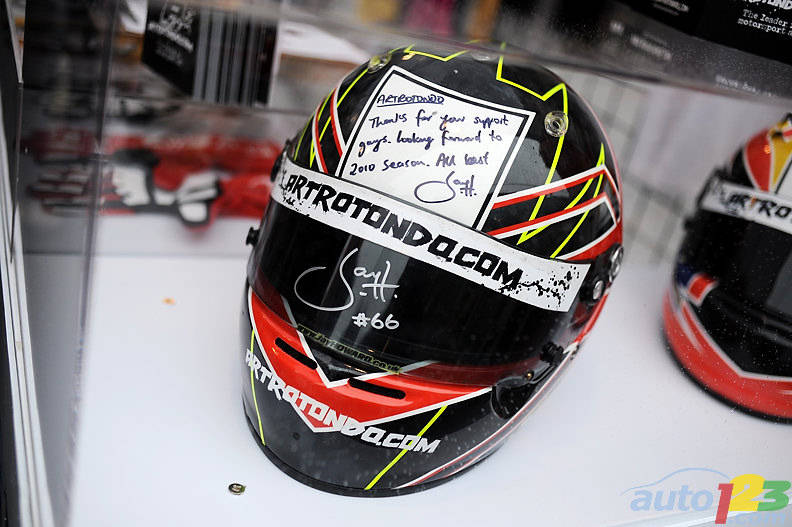 The leader
motorsport
ARTROTONDO
Thanks for your support
guys. Looking forward to
2010 season. All best
Jay H.
ARTROTONDO.COM
Jay H.
#66
ARTROTONDO.COM
ARTROTO
auto123